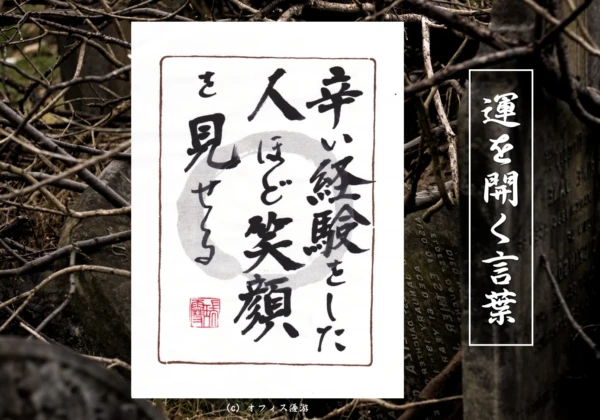 運を開く言葉
辛い経験をした
人ほど笑顔
を見せる
(C) オフィス優游